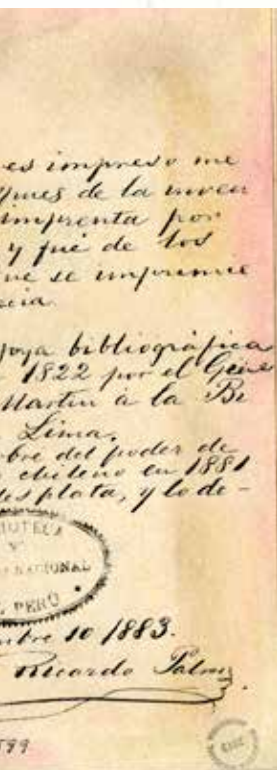 es impreso me
pues de la inven
imprenta por
y fué de los
ue se imprimie
cia.
joya bibliográfica
1822 por el Gene
Martin à la Bi
Lima.
bre del poder de
chileno en 1881
des plata, y lo de-
BIOTECA
Y
NACIONAL
PERÚ
mbre 10 1883.
Ricardo Palma
599